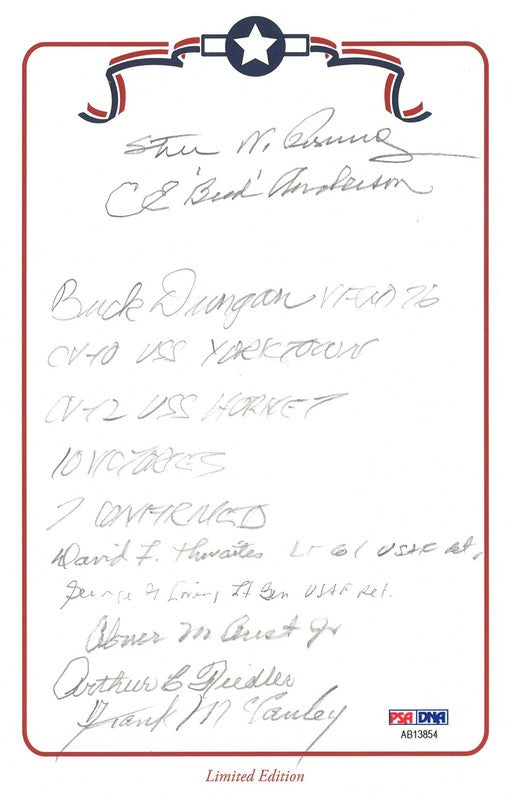 Steve N. Pisanos
C E 'Bud' Anderson
Buck Dungan VF(N) 76
CV-10 USS YORKTOWN
CV-12 USS HORNET
10 VICTORIES
7 CONFIRMED
David F. Thwaites Lt Col USAF Ret.
George G Loving Lt Gen USAF Ret.
Abner M Aust Jr
Arthur C Fiedler
Frank McCauley
PSA DNA
AB13854
Limited Edition